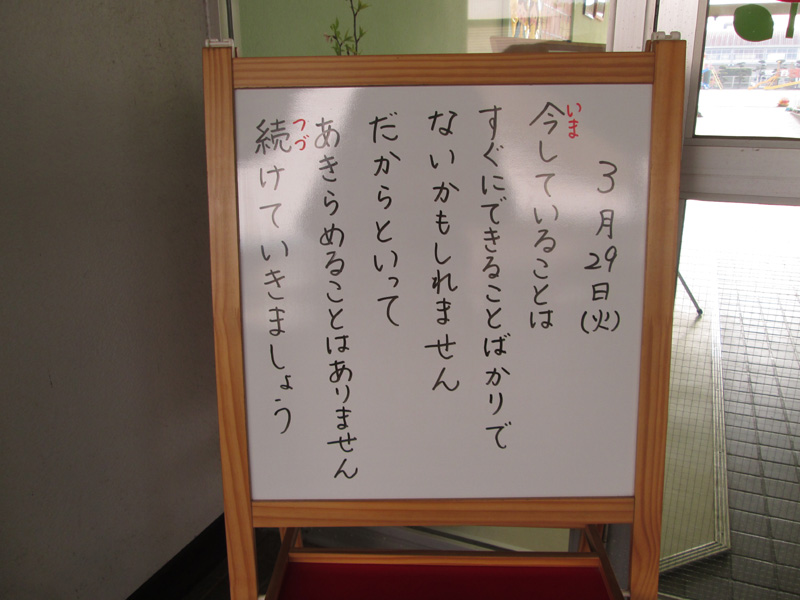 3月29日(火)
今していることは
いま
すぐにできることばかりで
ないかもしれません
だからといって
あきらめることはありません
続けていきましょう
つづ